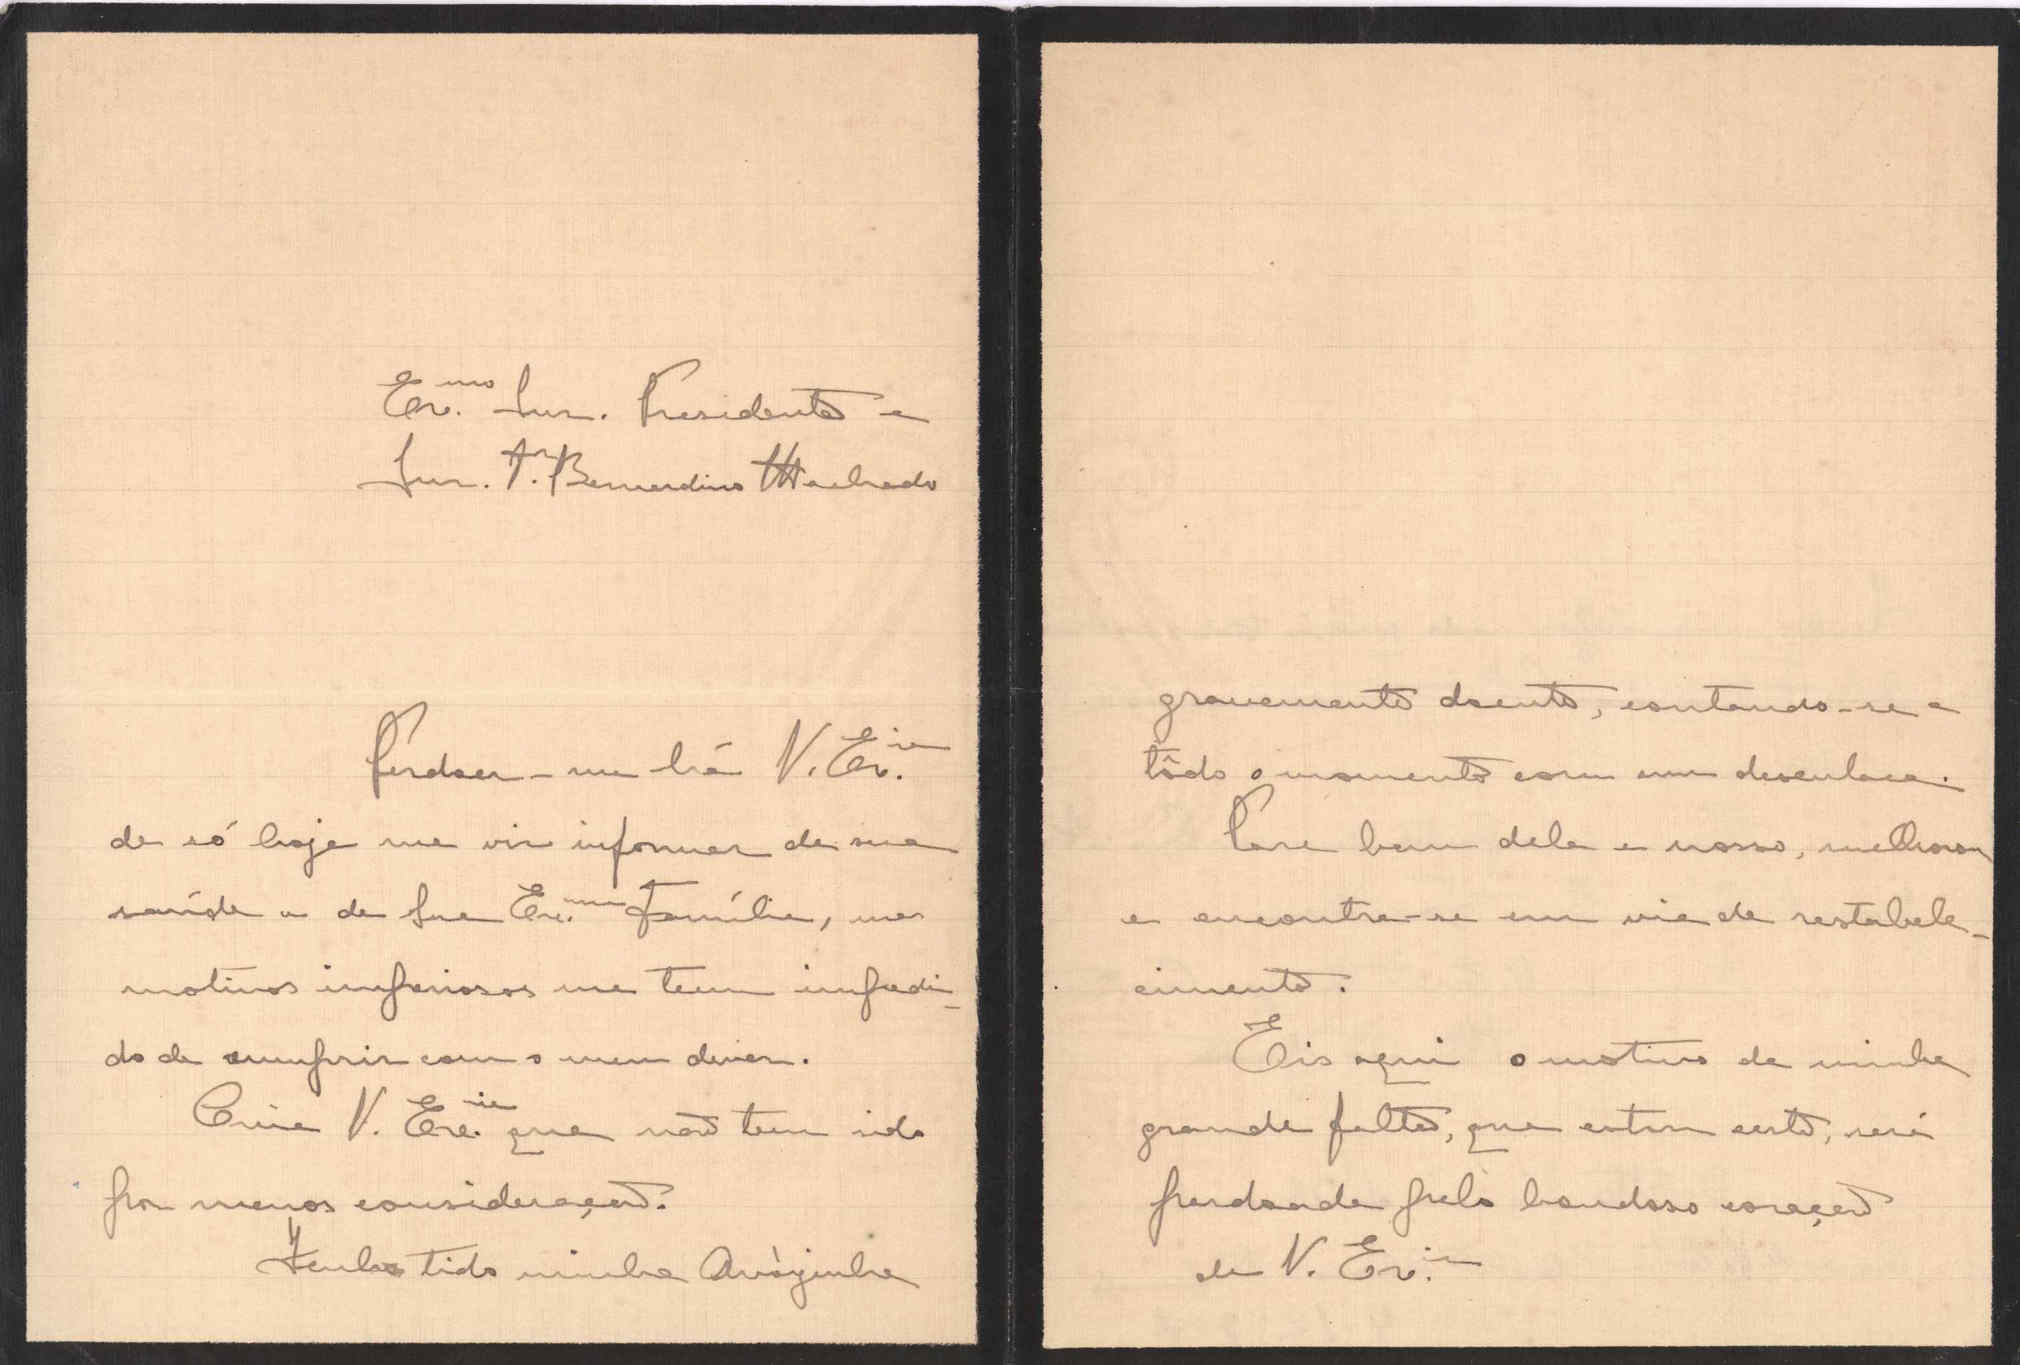 Ex.mo Snr. Presidente e
Snr. Dr. Bernardino Machado
Perdoar-me há V. Ex.cia
de só hoje me vir informar de sua
saúde e de Sua Ex.ma Família, mas
motivos imperiosos me tem impedi-
do de cumprir com o meu dever.
Creia V. Ex.cia que não tem sido
por menos consideração.
Tenho tido minha Avòzinha
gravemente doente, contando-se a
tôdo o momento com um desenlace.
Para bem dela e nosso, melhorou
e encontra-se em via de restabele-
cimento.
Eis aqui o motivo da minha
grande falta, que estou certo, será
perdoada pelo bondoso coração
de V. Ex.cia